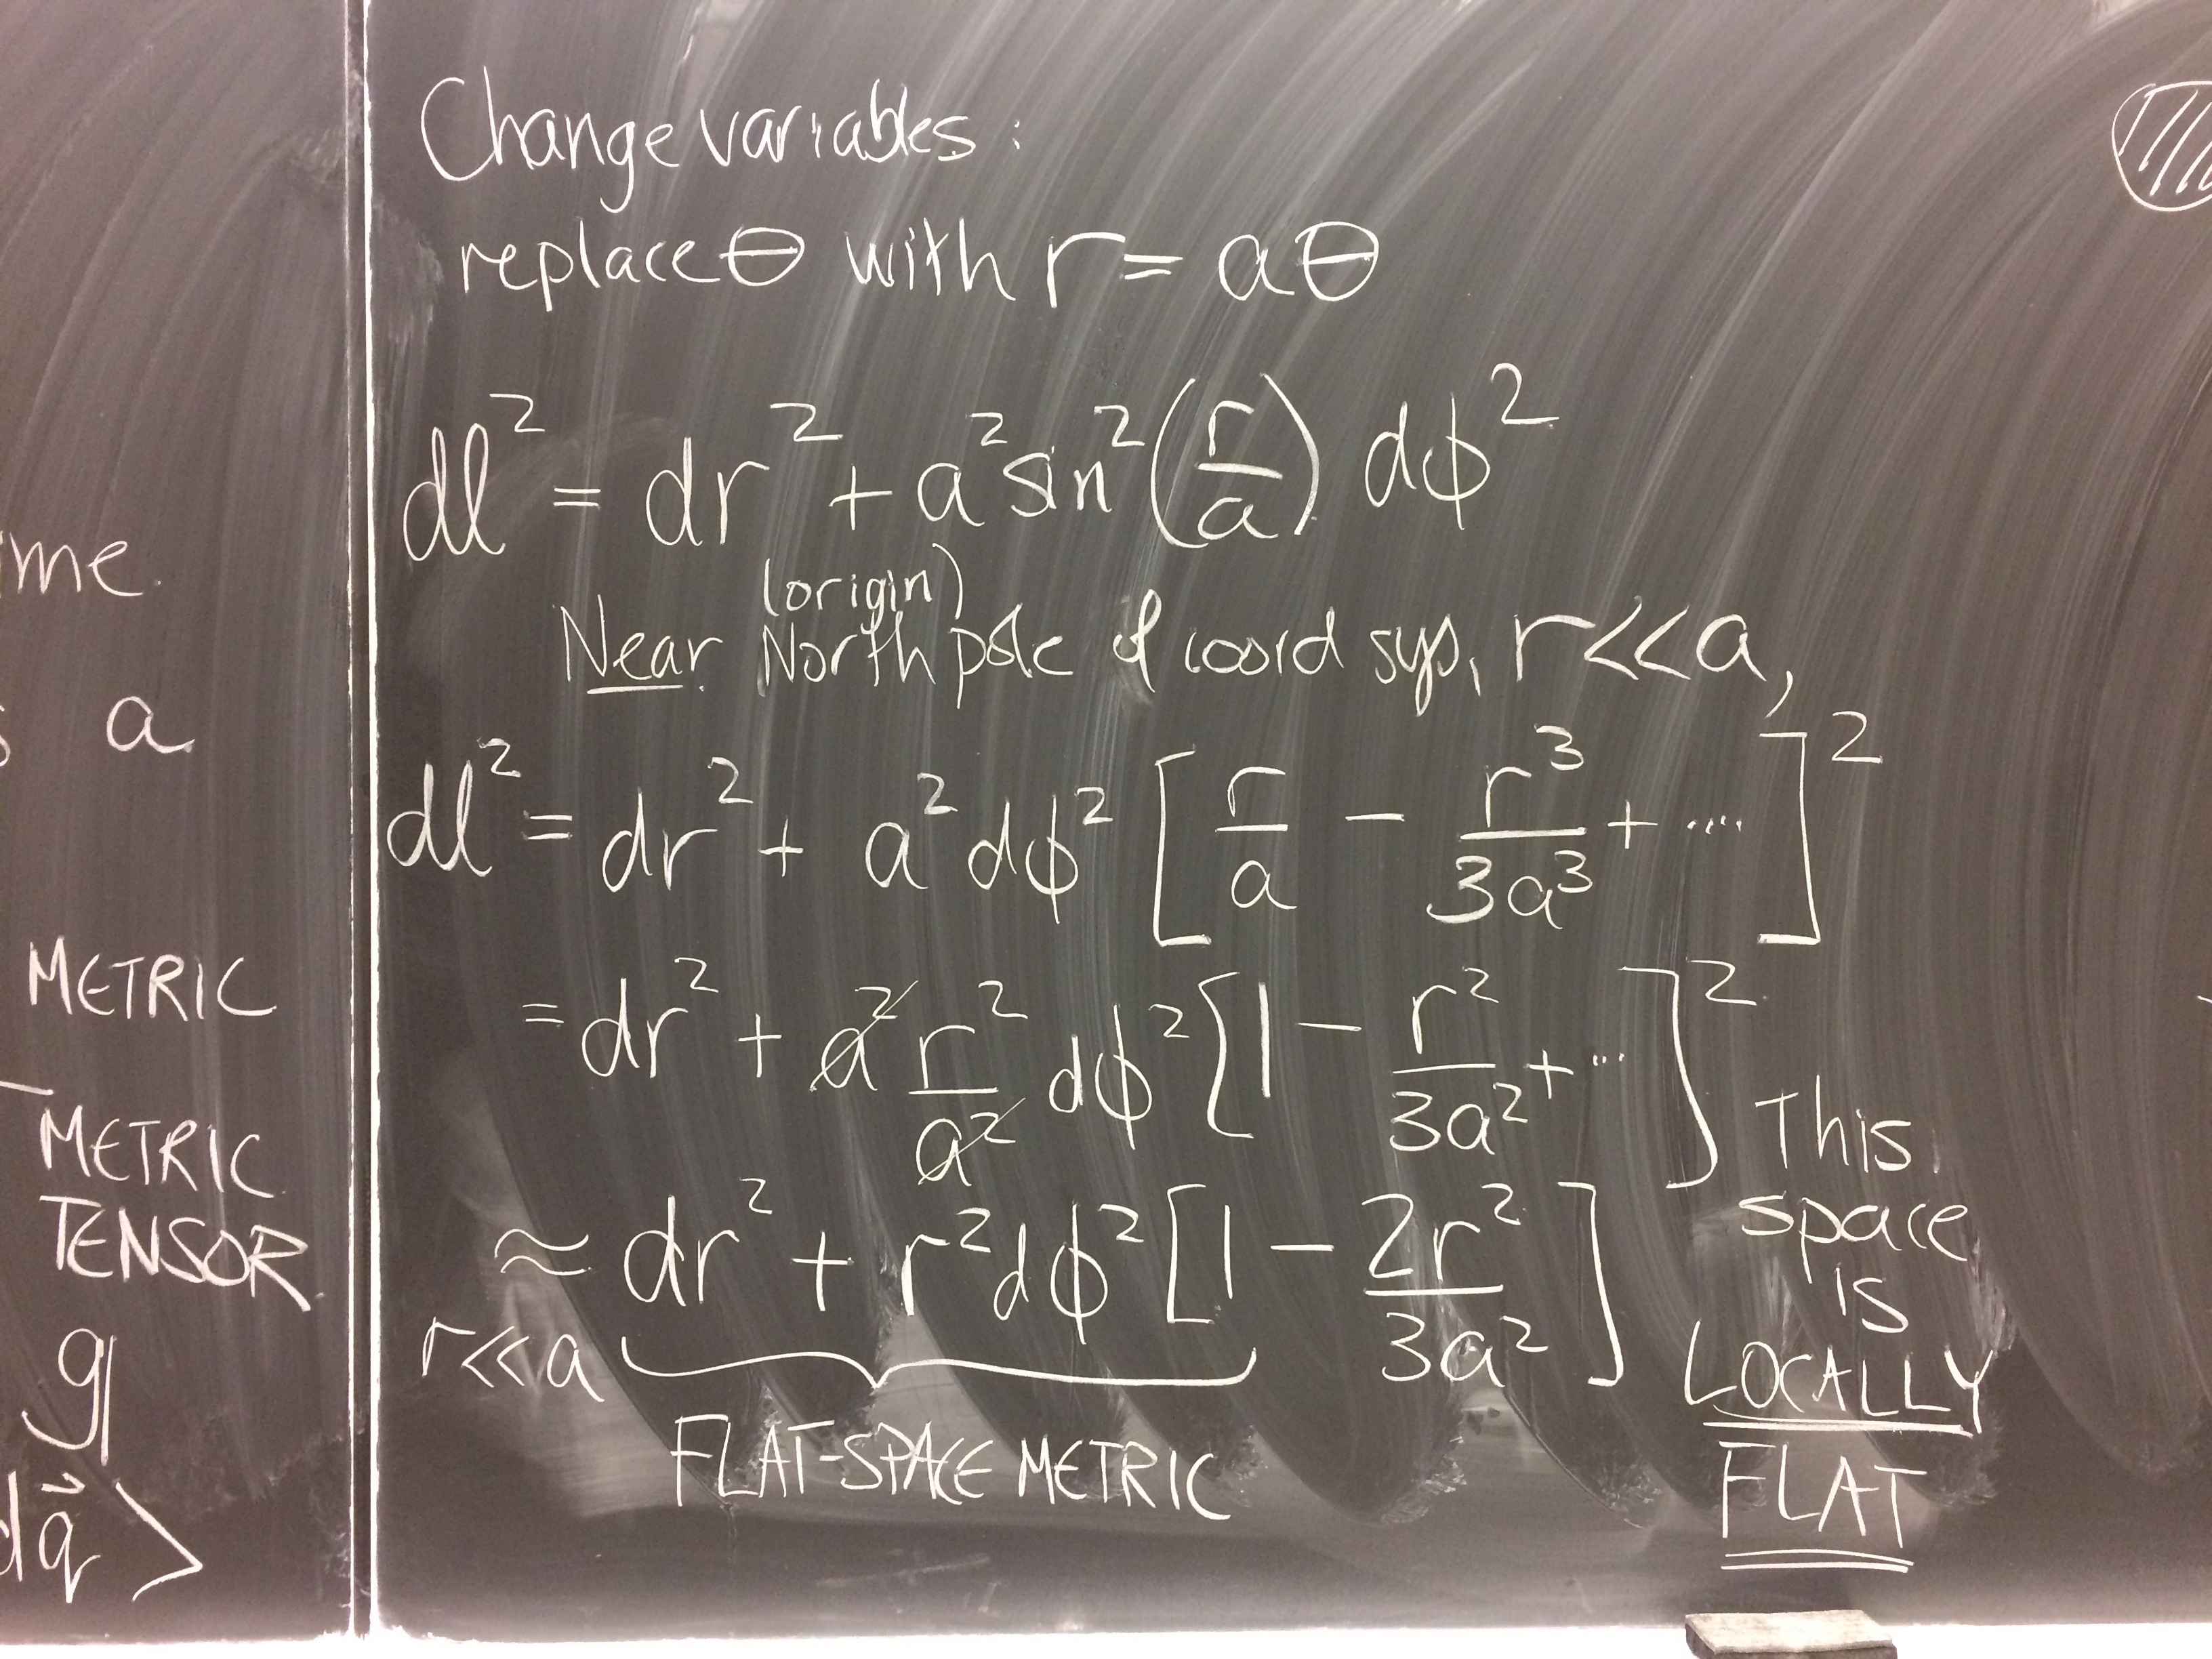 me
a
METRIC
METRIC
TENSOR
g
dq⃗ >
Change variables:
replace θ with r = aθ
dl² = dr² + a² sin² (r/a) dϕ²
(origin)
Near North pole of coord sys, r<<a,
dl² = dr² + a² dϕ² [r/a − r³/3a³ + ....]²
= dr² + a² r²/a² dϕ² [1 − r²/3a² + ...]²
≈ dr² + r² dϕ² [1 − 2r²/3a²]
r<<a
FLAT-SPACE METRIC
This
space
is
LOCALLY
FLAT